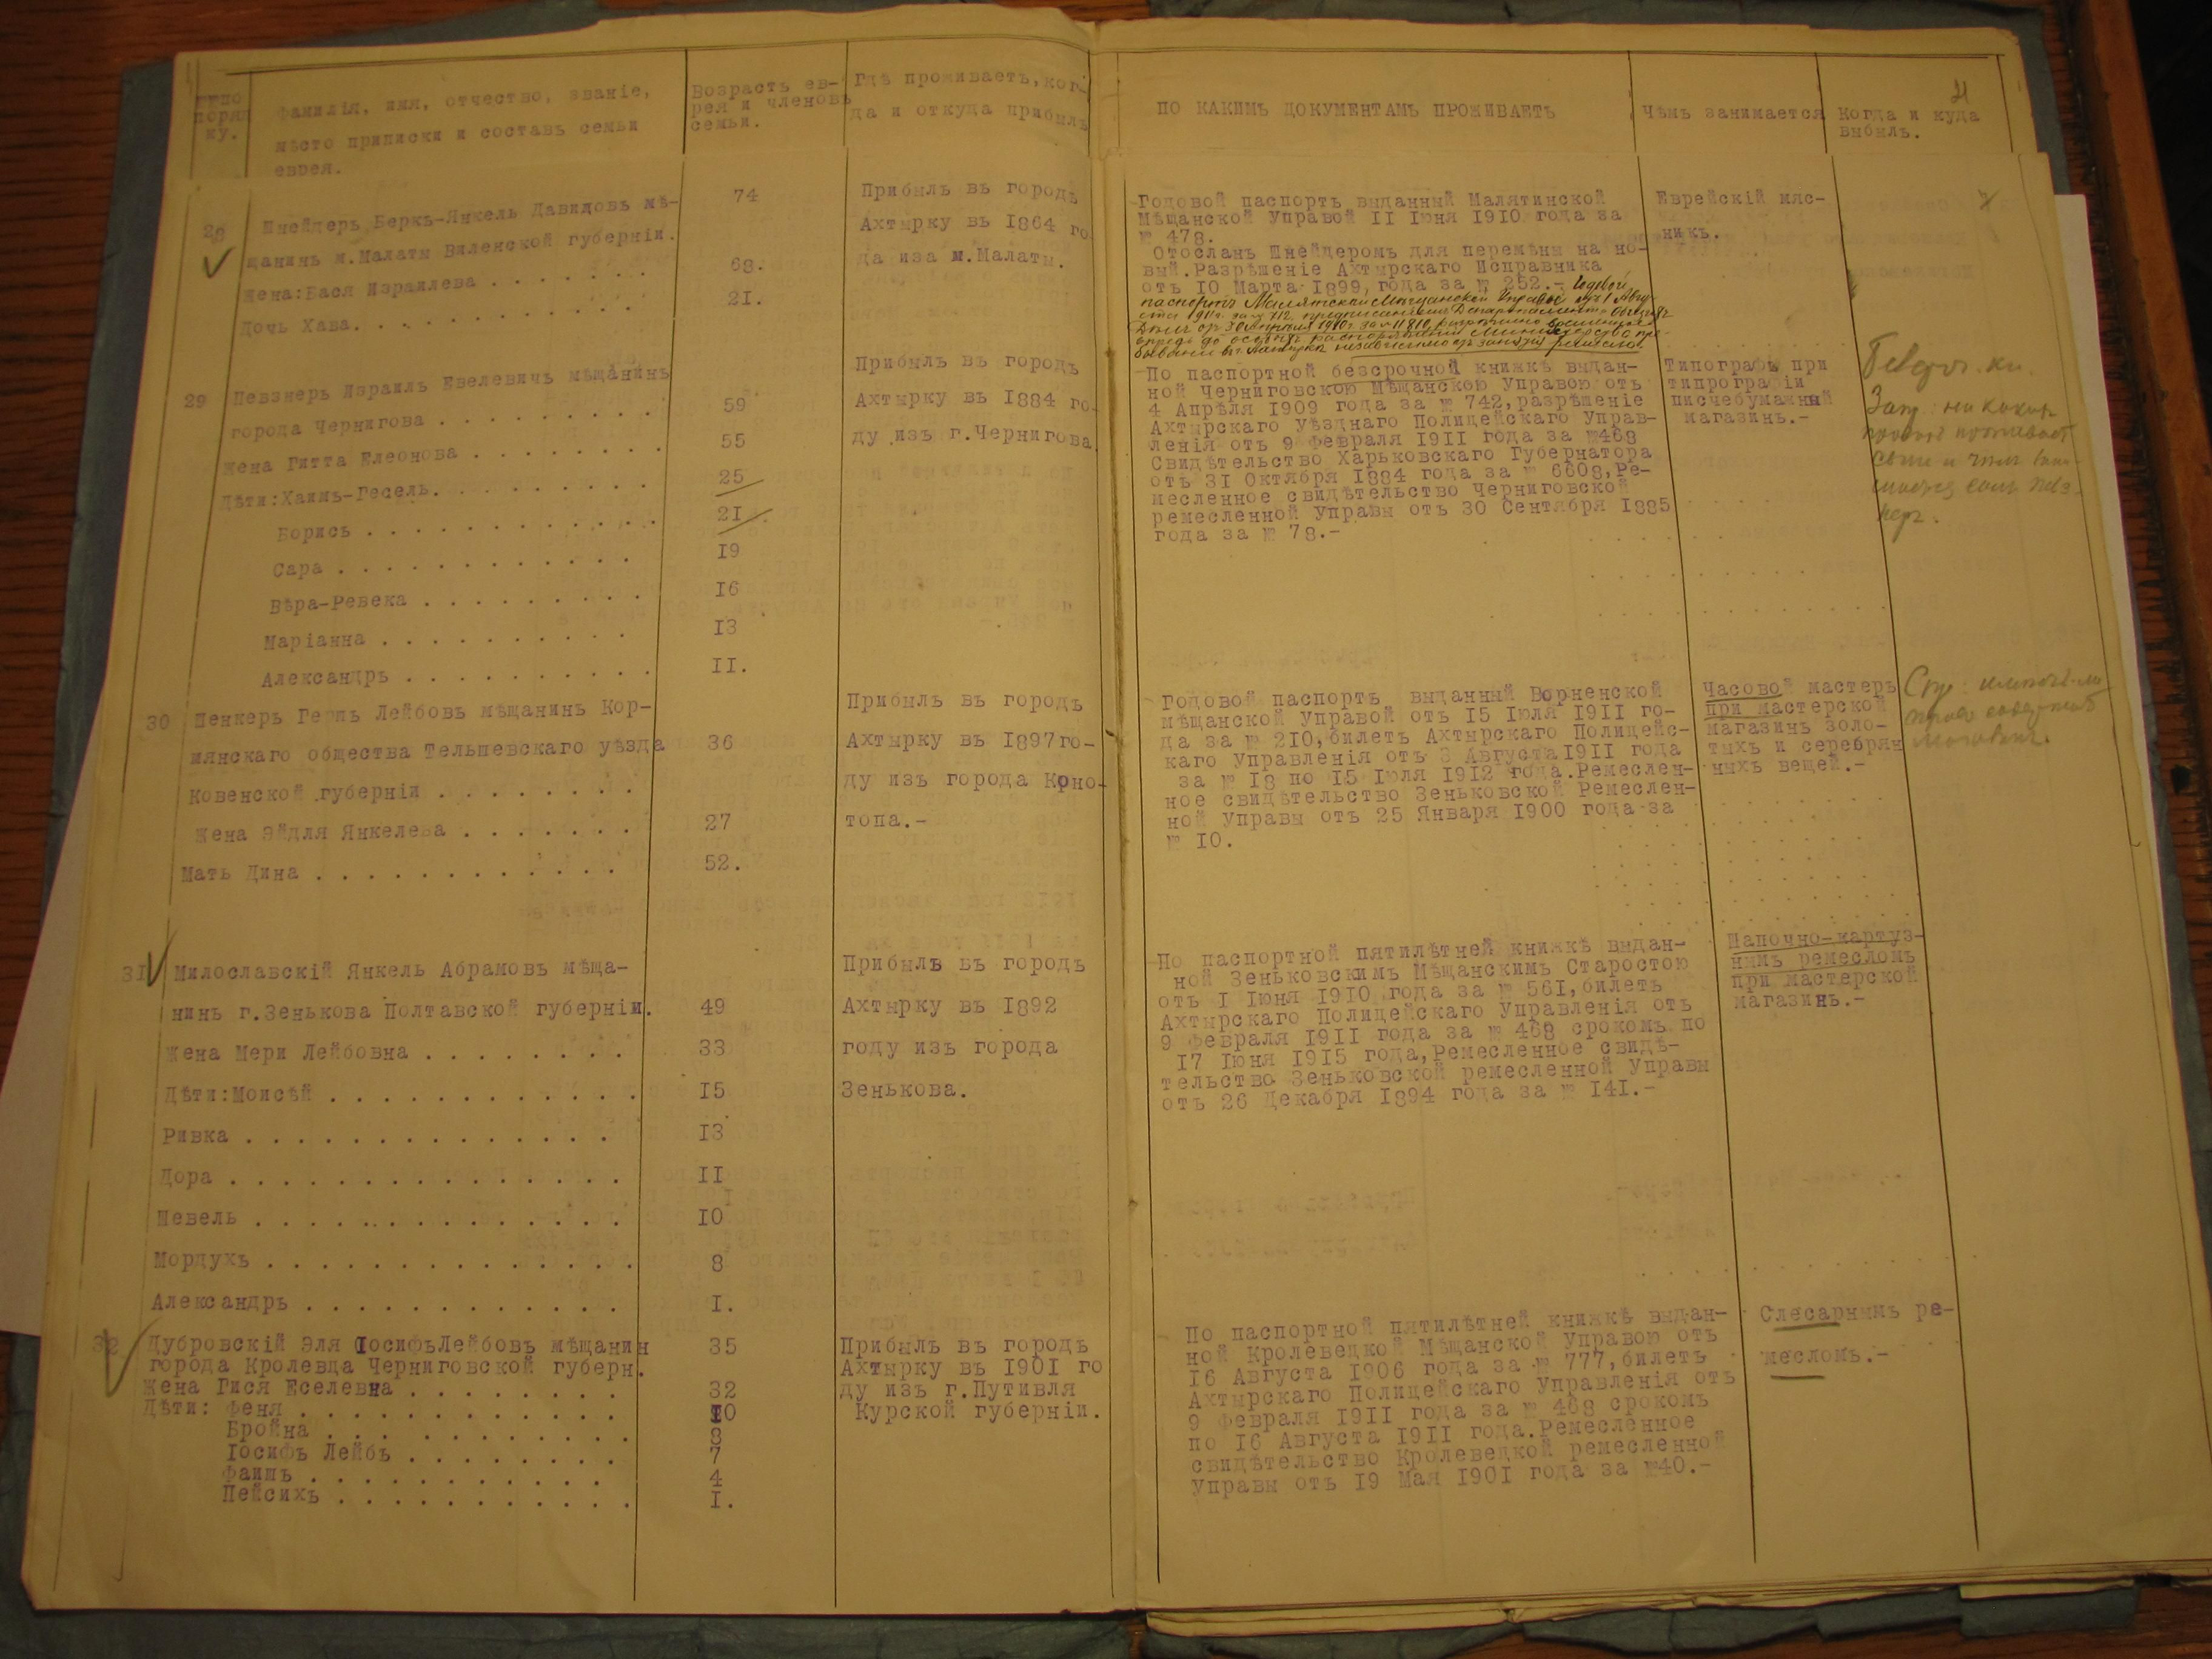 поряд
ку.
Фамилія, имя, отчество, званіе,
мѣсто приписки и составъ семьи
еврея.
Возрастъ ев-
рея и членовъ
семьи.
Гдѣ проживаетъ, ког-
да и откуда прибылъ
ПО КАКИМЪ ДОКУМЕНТАМЪ ПРОЖИВАЕТЪ
Чѣмъ занимается
Когда и куда
выбылъ.
28
Шнейдеръ Беркъ-Янкель Давидовъ мѣ-
щанинъ м.Малаты Виленской губерніи.
Жена:Бася Израилева . . . . . .
Дочь Хава. . . . . . . . . . .
74
68.
21.
Прибылъ въ городъ
Ахтырку въ 1864 го-
да иза м.Малаты.
Годовой паспортъ выданный Малятинской
Мѣщанской Управой II Іюня 1910 года за
№ 478.
Отосланъ Шнейдеромъ для перемѣны на но-
вый.Разрѣшеніе Ахтырскаго Исправника
отъ 10 Марта 1899,года за № 252.- Годовой
паспортъ Малятской Мѣщанской Управы отъ 1 Авгу-
ста 1911г. за № 712
Еврейскій мяс-
никъ.
29
Певзнеръ Израилъ Евелевичъ мѣщанинъ
города Чернигова . . . . . . . .
Жена Гитта Елеонова . . . . . . . .
Дѣти:Хаимъ-Гесель. . . . . . . . .
Борисъ . . . . . . . . . . . .
Сара . . . . . . . . . . . .
Вѣра-Ревека . . . . . . . . .
Маріанна . . . . . . . . . .
Александръ . . . . . . . . . .
59
55
25
21.
19
16
13
II.
Прибылъ въ городъ
Ахтырку въ 1884 го-
ду изъ г.Чернигова
По паспортной безсрочной книжкѣ выдан-
ной Черниговскою Мѣщанскою Управою отъ
4 Апрѣля 1909 года за № 742,разрѣшеніе
Ахтырскаго Уѣзднаго Полицейскаго Управ-
ленія отъ 9 Февраля 1911 года за №468
Свидѣтельство Харьковскаго Губернатора
отъ 31 Октября 1884 года за № 6608,Ре-
месленное свидѣтельство Черниговской
ремесленной Управы отъ 30 Сентября 1885
года за № 78.-
Типографъ при
типрографіи
писчебумажный
магазинъ.-
30
Шенкеръ Гершъ Лейбовъ мѣщанинъ Кор-
мянскаго общества Тельшевскаго уѣзда
Ковенской губерніи . . . . . . . .
Жена Эйдля Янкелева . . . . . . .
Мать Дина . . . . . . . . . . . .
36
27
52.
Прибылъ въ городъ
Ахтырку въ 1897го-
ду изъ города Коно-
топа.-
Годовой паспортъ выданный Ворненской
мѣщанской Управой отъ 15 Іюля 1911 го-
да за № 210,билетъ Ахтырскаго Полицейс-
каго Управленія отъ 3 Августа 1911 года
за № 18 по 15 Іюля 1912 года.Ремеслен-
ное свидѣтельство Зеньковской Ремеслен-
ной Управы отъ 25 Января 1900 года за
№ 10.
Часовой мастеръ
при мастерской
магазинъ золо-
тыхъ и серебрян
ныхъ вещей.-
31
Милославскій Янкель Абрамовъ мѣща-
нинъ г.Зенькова Полтавской губерніи.
Жена Мери Лейбовна . . . . . . . .
Дѣти:Моисѣй . . . . . . . . . . . .
Ривка . . . . . . . . . . . . . .
Дора . . . . . . . . . . . . . . .
Шевель . . . . . . . . . . . . . .
Мордухъ . . . . . . . . . . . . . .
Александръ . . . . . . . . . . . .
49
33
15
13
II
10
8
I.
Прибылъ въ городъ
Ахтырку въ 1892
году изъ города
Зенькова.
По паспортной пятилѣтней книжкѣ выдан-
ной Зеньковскимъ Мѣщанскимъ Старостою
отъ I Іюня 1910 года за № 561,билетъ
Ахтырскаго Полицейскаго Управленія отъ
9 Февраля 1911 года за № 468 срокомъ по
17 Іюня 1915 года,Ремесленное свидѣ-
тельство Зеньковской ремесленной Управы
отъ 26 Декабря 1894 года за № 141.-
Шапочно-картуз-
нымъ ремесломъ
при мастерской
магазинъ.-
32
Дубровскій Эля ІосифъЛейбовъ мѣщанин
города Кролевца Черниговской губерн.
Жена Гися Еселевна . . . . . . . . .
Дѣти: Феня . . . . . . . . . . . .
Бройна . . . . . . . . . . . .
Іосифъ Лейбъ . . . . . . . .
Фаишъ . . . . . . . . . . . .
Пейсихъ . . . . . . . . . . .
35
32
10
8
7
4
I.
Прибылъ въ городъ
Ахтырку въ 1901 го
ду изъ г.Путивля
Курской губерніи.
По паспортной пятилѣтней книжкѣ выдан-
ной Кролевецкой Мѣщанской Управою отъ
16 Августа 1906 года за № 777,билетъ
Ахтырскаго Полицейскаго Управленія отъ
9 Февраля 1911 года за № 468 срокомъ
по 16 Августа 1911 года.Ремесленное
свидѣтельство Кролевецкой ремесленной
Управы отъ 19 Мая 1901 года за №40.-
Слесарнымъ ре-
месломъ.-